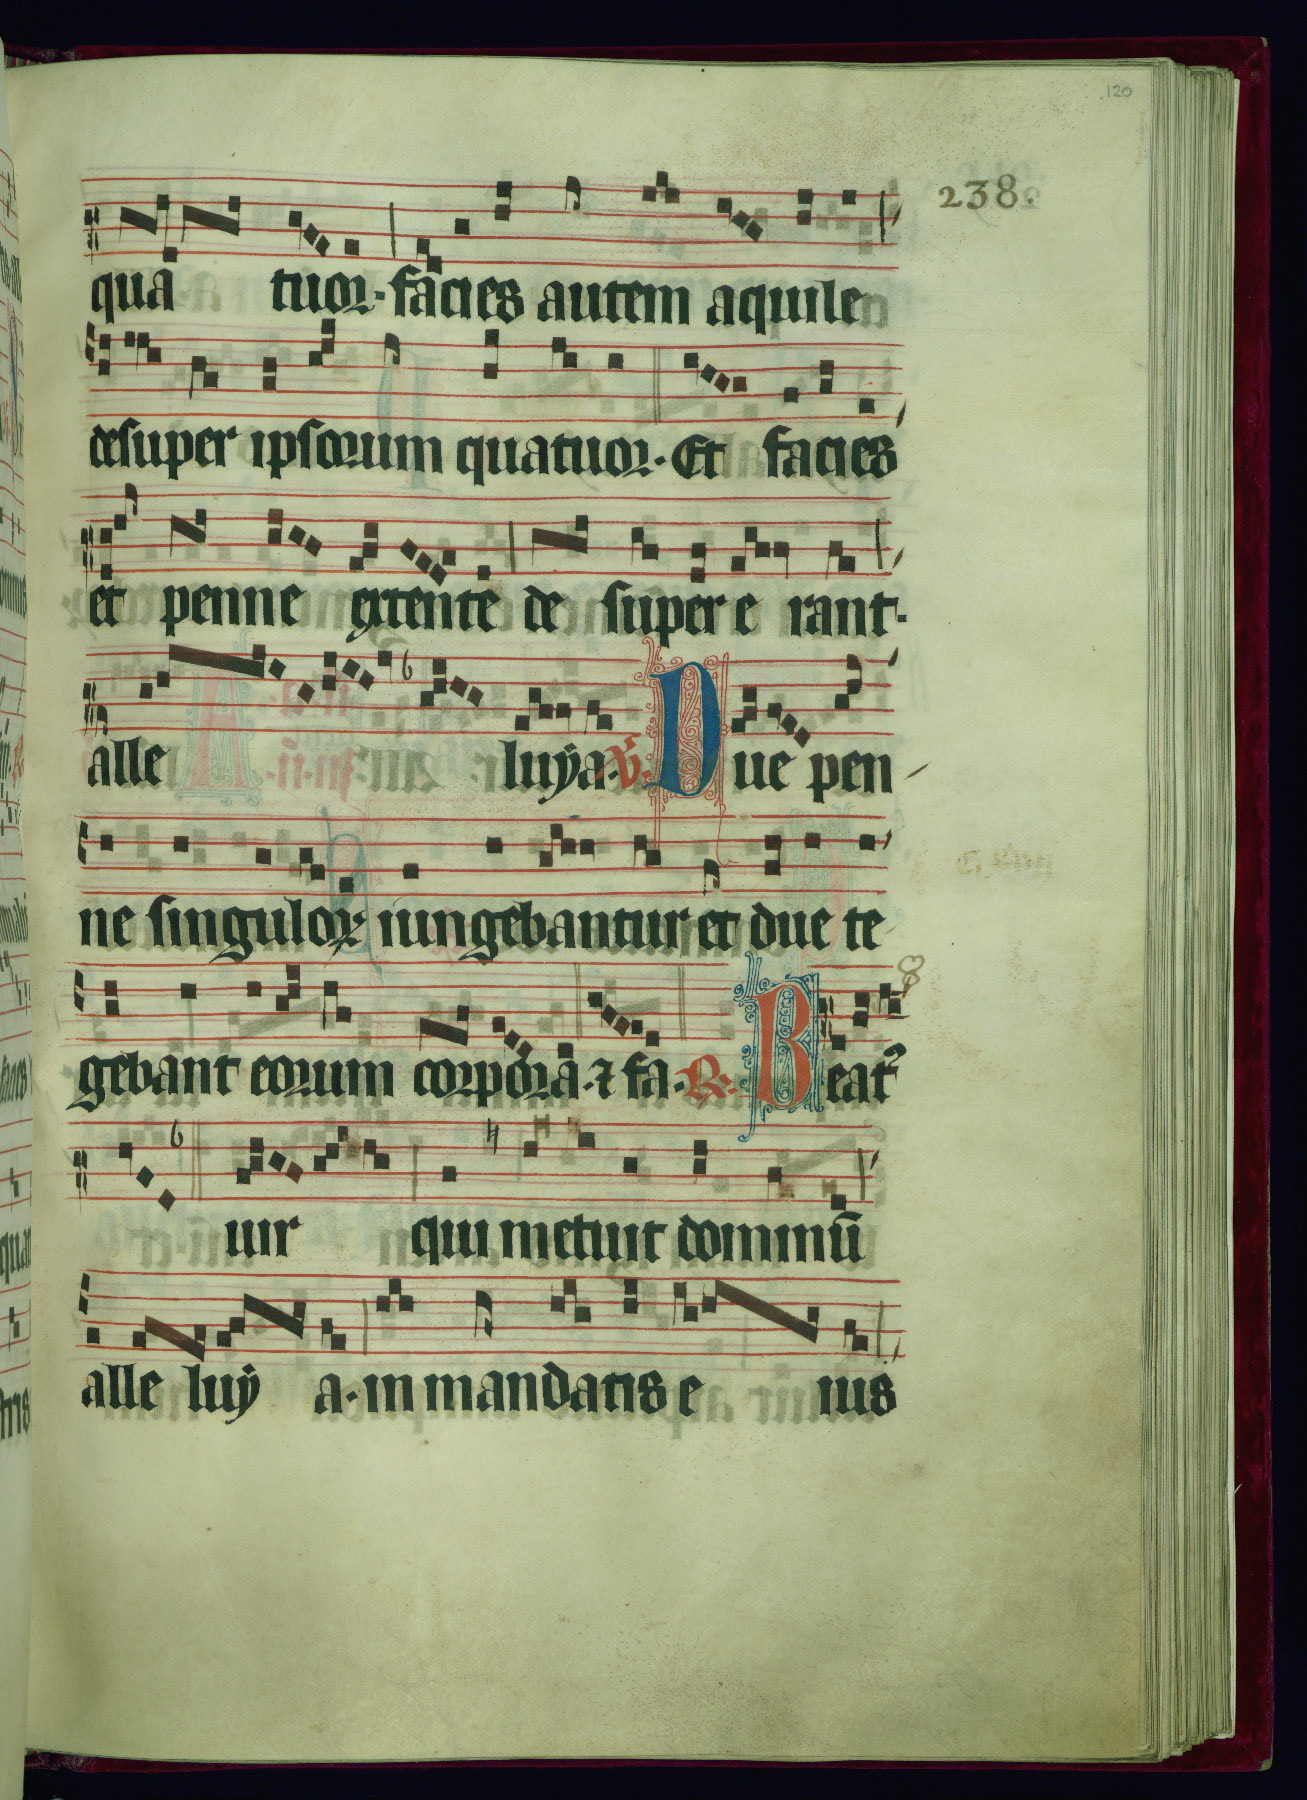 120
238.
qua tuor. facies autem aquile
desuper ipsorum quatuor. Et facies
et penne extente de super e rant.
alle luya. V. Due pen
ne singuloꝝ iungebantur et due te
gebant eorum corpora. ⁊ fa. R. Beat᷑
uir qui metuit dominū
alle luy a. in mandatis e ius